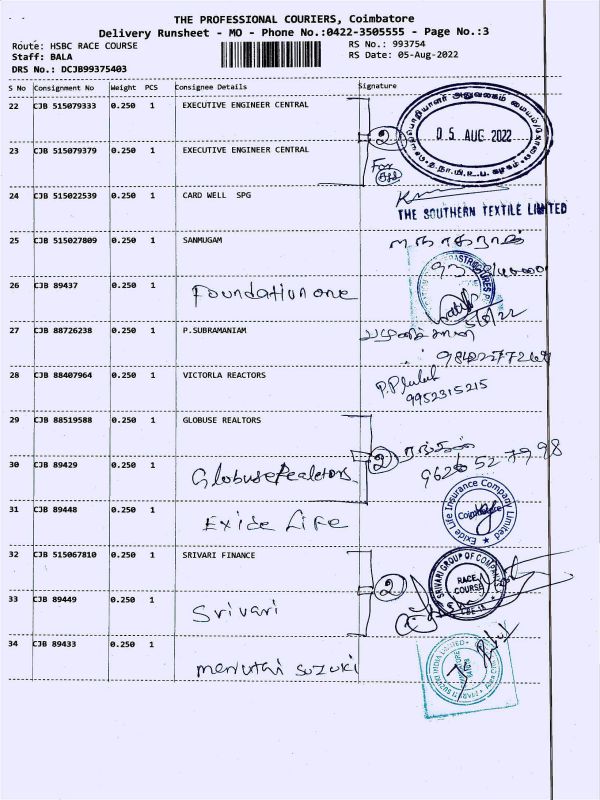 THE PROFESSIONAL COURIERS, Coimbatore
Delivery Runsheet - MO - Phone No.:0422-3505555 - Page No.:3
Route: HSBC RACE COURSE
RS No.: 993754
Staff: BALA
RS Date: 05-Aug-2022
DRS No.: DCJB99375403
S No Consignment No Weight PCS Consignee Details Signature
22 CJB 515079333 0.250 1 EXECUTIVE ENGINEER CENTRAL
2
05 AUG 2022
23 CJB 515079379 0.250 1 EXECUTIVE ENGINEER CENTRAL
For
24 CJB 515022539 0.250 1 CARD WELL SPG
THE SOUTHERN TEXTILE LIMITED
25 CJB 515027809 0.250 1 SANMUGAM
26 CJB 89437 0.250 1 Foundation one
5/8/22
27 CJB 88726238 0.250 1 P.SUBRAMANIAM
28 CJB 88407964 0.250 1 VICTORLA REACTORS
9952315215
29 CJB 88519588 0.250 1 GLOBUSE REALTORS
30 CJB 89429 0.250 1 Globuse Realetors
2
31 CJB 89448 0.250 1 Exide Life
Exide Life Insurance Company Limited
Coimbatore
32 CJB 515067810 0.250 1 SRIVARI FINANCE
2
SRIVARI GROUP OF COMPANY
RACE
COURSE
33 CJB 89449 0.250 1 Srivari
34 CJB 89433 0.250 1 merutai suzuki